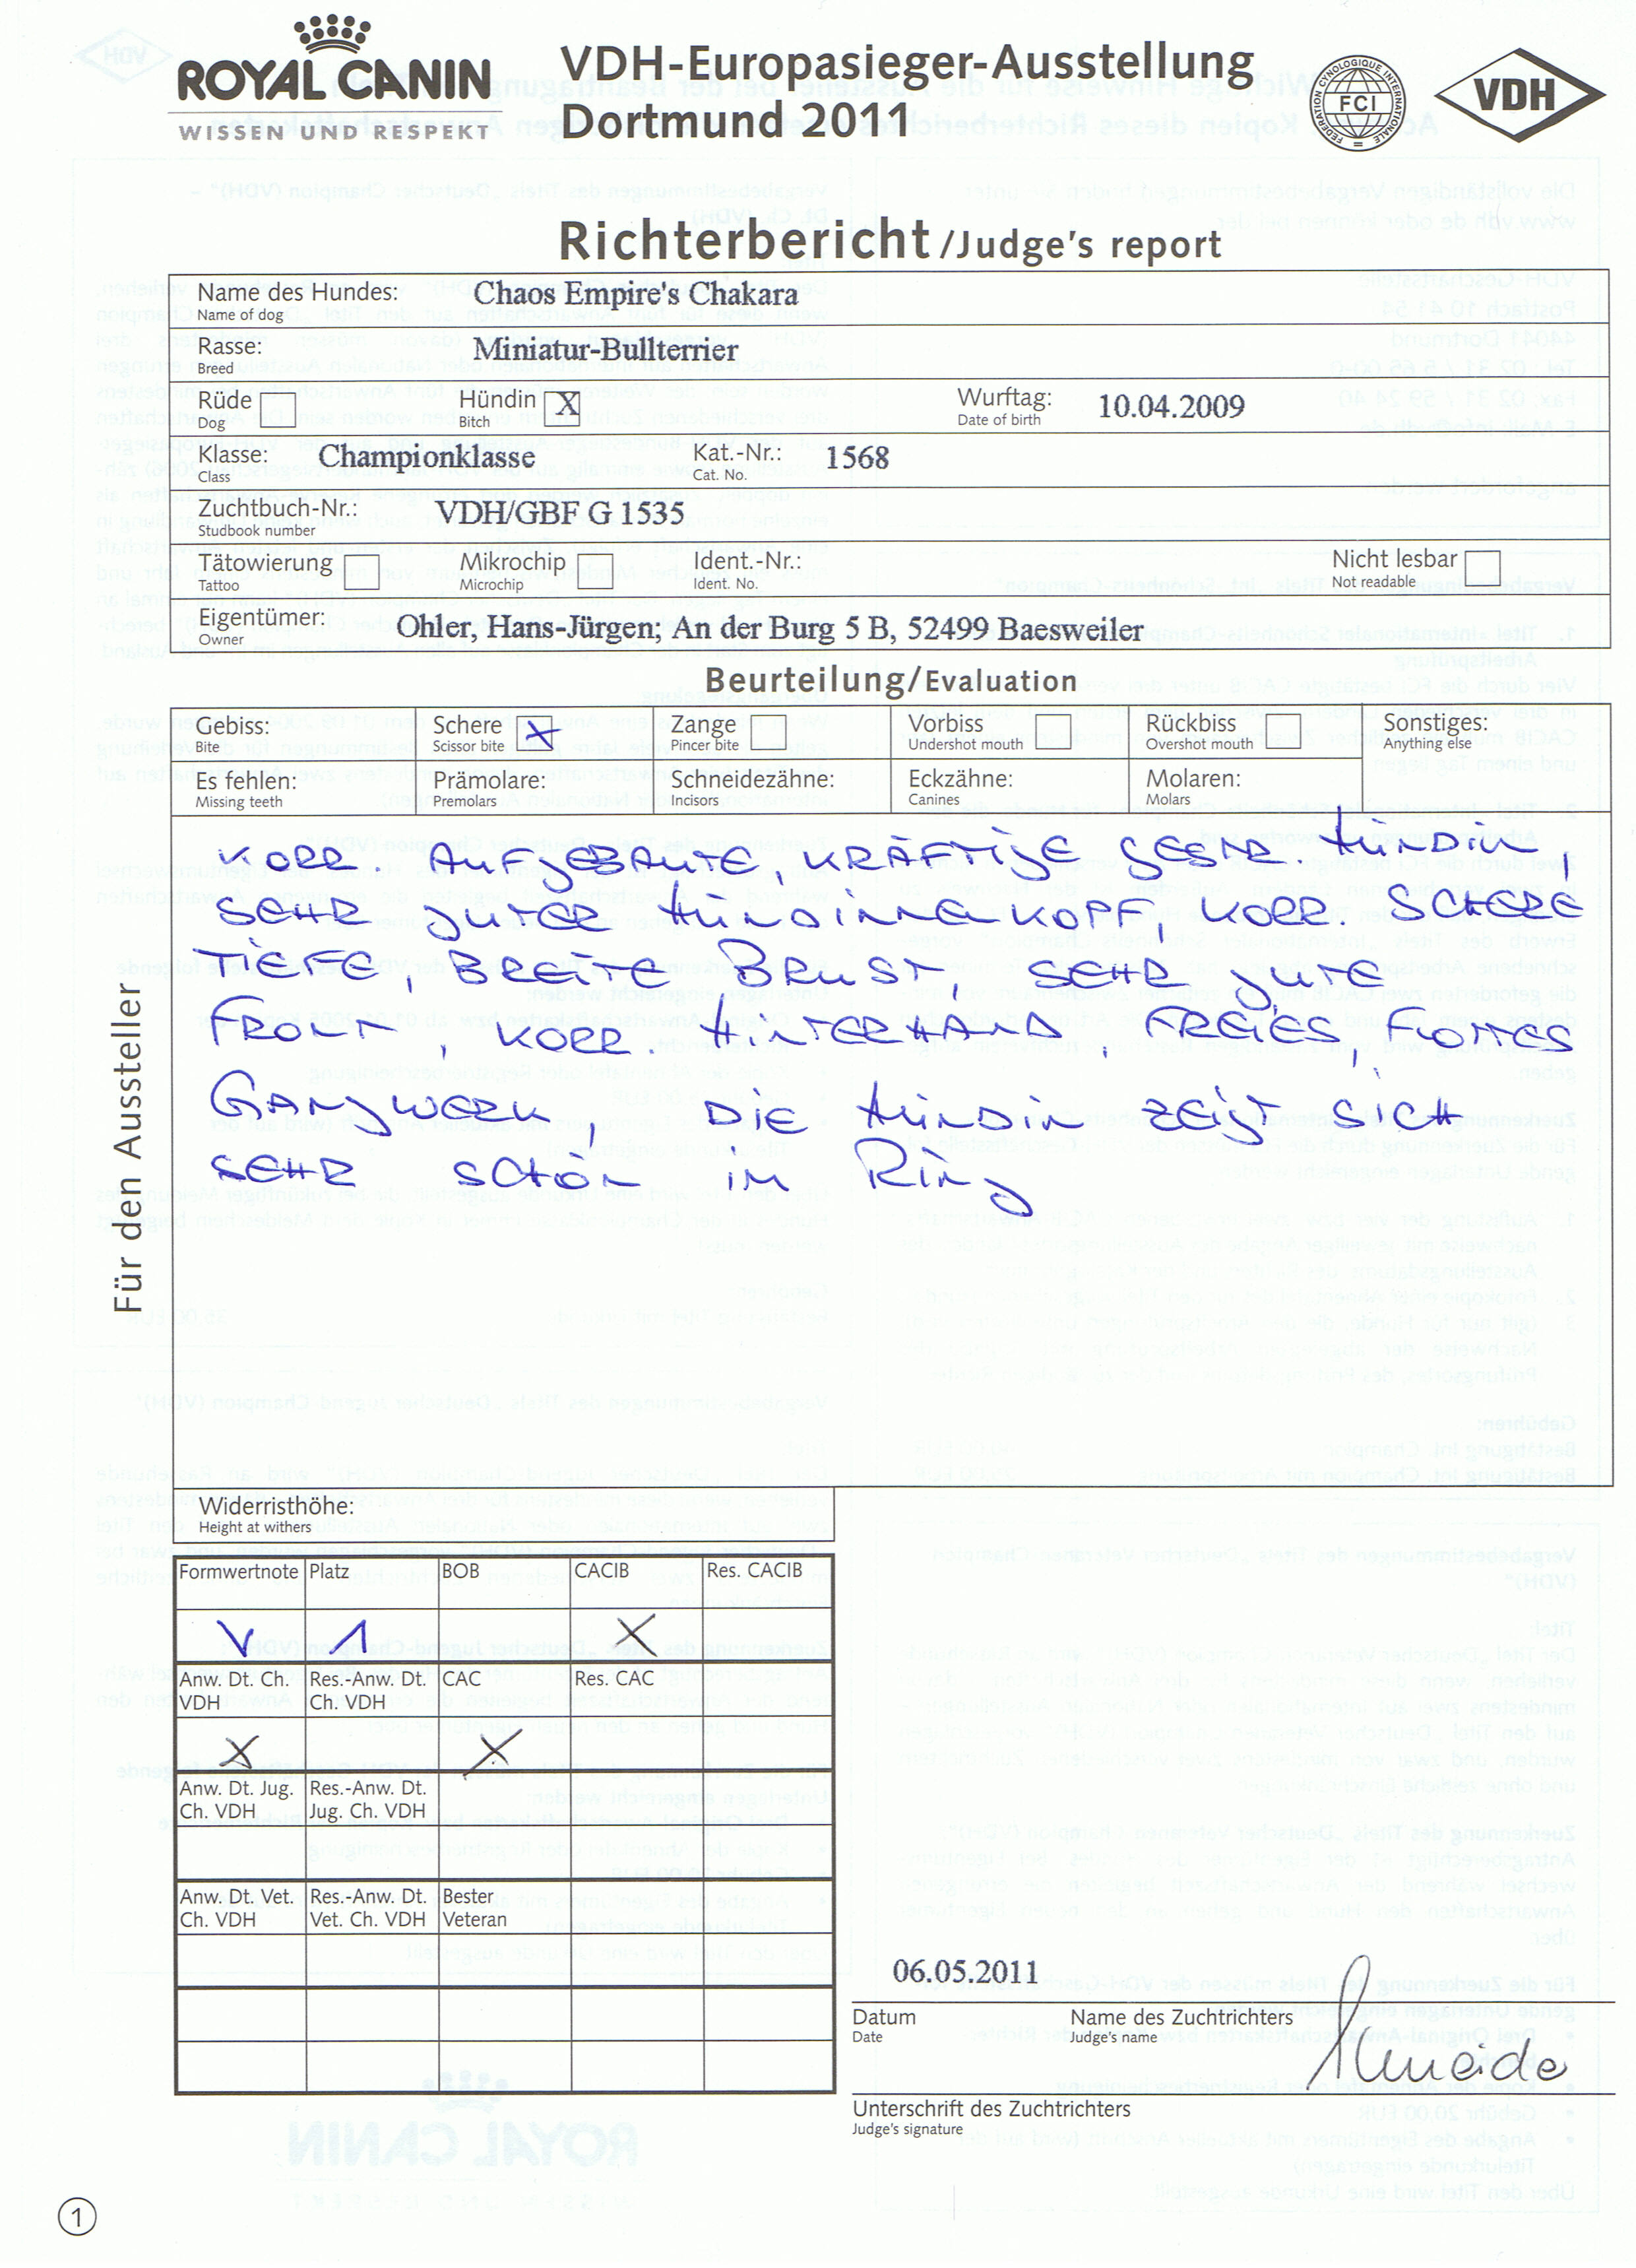 ROYAL CANIN
WISSEN UND RESPEKT
VDH-Europasieger-Ausstellung
Dortmund 2011
FEDERATION CYNOLOGIQUE INTERNATIONALE
FCI
VDH
Richterbericht /Judge's report
Name des Hundes: Chaos Empire's Chakara
Name of dog
Rasse: Miniatur-Bullterrier
Breed
Rüde Hündin X Wurftag: 10.04.2009
Dog Bitch Date of birth
Klasse: Championklasse Kat.-Nr.: 1568
Class Cat. No.
Zuchtbuch-Nr.: VDH/GBF G 1535
Studbook number
Tätowierung Mikrochip Ident.-Nr.: Nicht lesbar
Tattoo Microchip Ident. No. Not readable
Eigentümer: Ohler, Hans-Jürgen; An der Burg 5 B, 52499 Baesweiler
Owner
Beurteilung/Evaluation
Gebiss: Schere X Zange Vorbiss Rückbiss Sonstiges:
Bite Scissor bite Pincer bite Undershot mouth Overshot mouth Anything else
Es fehlen: Premolare: Schneidezähne: Eckzähne: Molaren:
Missing teeth Premolars Incisors Canines Molars
Für den Aussteller
KORR AUFGEBAUTE, KRÄFTIGE GESTR. HÜNDIN,
SEHR GUTER HÜNDINNENKOPF, KORR. SCHERE
TIEFE, BREITE BRUST, SEHR GUTE
FRONT, KORR. HINTERHAND, FREIES,
GANGWERK, DIE HÜNDIN ZEIGT SICH
SEHR SCHÖN IM RING
Widerristhöhe:
Height at withers
Formwertnote Platz BOB CACIB Res. CACIB
V 1 X
Anw. Dt. Ch. Res.-Anw. Dt. CAC Res. CAC
VDH Ch. VDH
X X
Anw. Dt. Jug. Res.-Anw. Dt.
Ch. VDH Jug. Ch. VDH
Anw. Dt. Vet. Res.-Anw. Dt. Bester
Ch. VDH Vet. Ch. VDH Veteran
06.05.2011
Datum Name des Zuchtrichters
Date Judge's name
Unterschrift des Zuchtrichters
Judge's signature
1